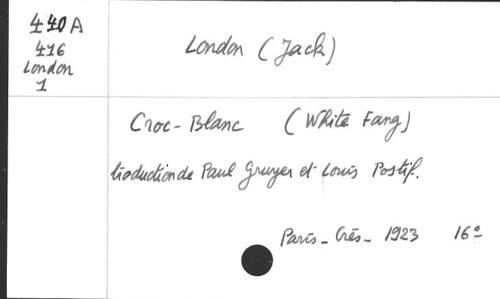 440A
416
London
1
London (Jack)
Croc-Blanc (White Fang)
traduction de Paul Gruyer et Louis Postif.
Paris - Crès - 1923 16°